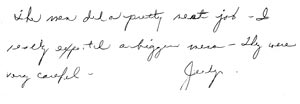 The men did a pretty neat job - I
really expected a bigger mess - They were
very careful - Judy.